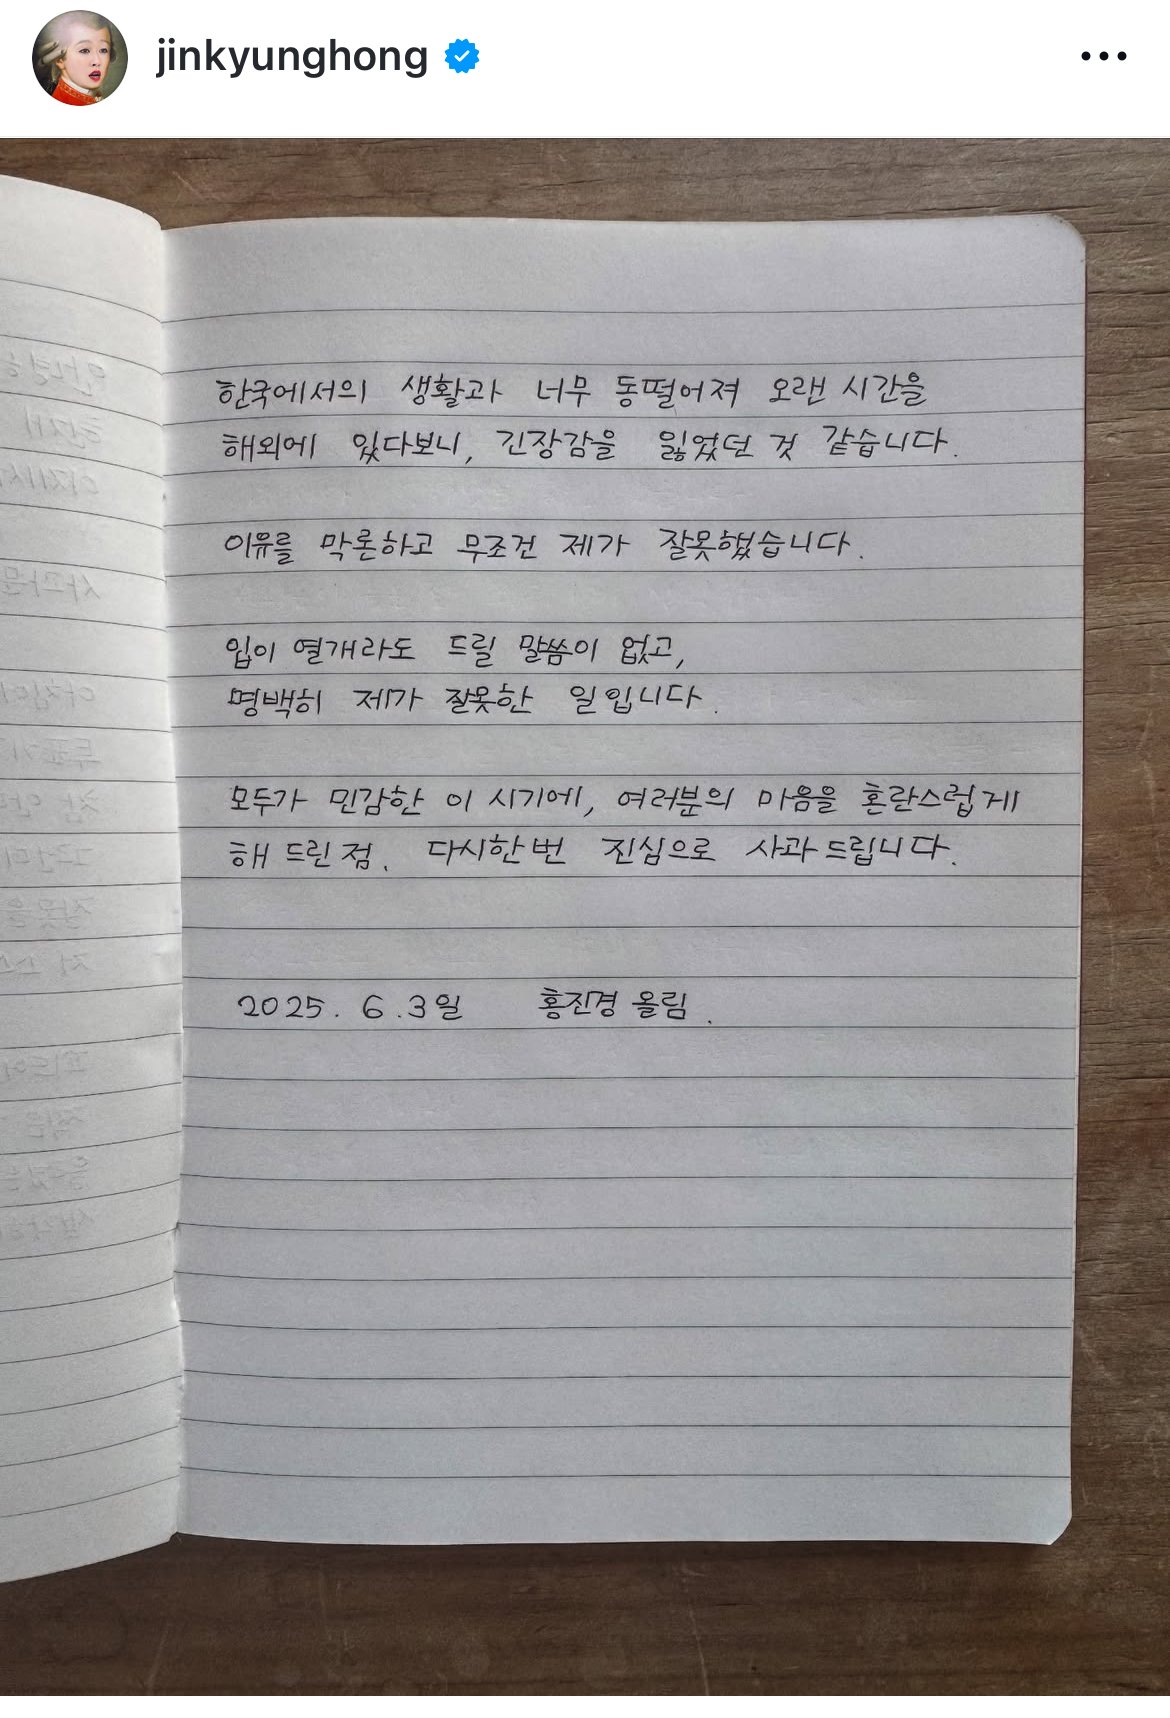 jinkyunghong
한국에서의 생활과 너무 동떨어져 오랜 시간을
해외에 있다보니, 긴장감을 잃었던 것 같습니다.
이유를 막론하고 무조건 제가 잘못했습니다.
입이 열개라도 드릴 말씀이 없고,
명백히 제가 잘못한 일입니다.
모두가 민감한 이 시기에, 여러분의 마음을 혼란스럽게
해 드린 점. 다시한번 진심으로 사과 드립니다.
2025. 6.3일 홍진경 올림.